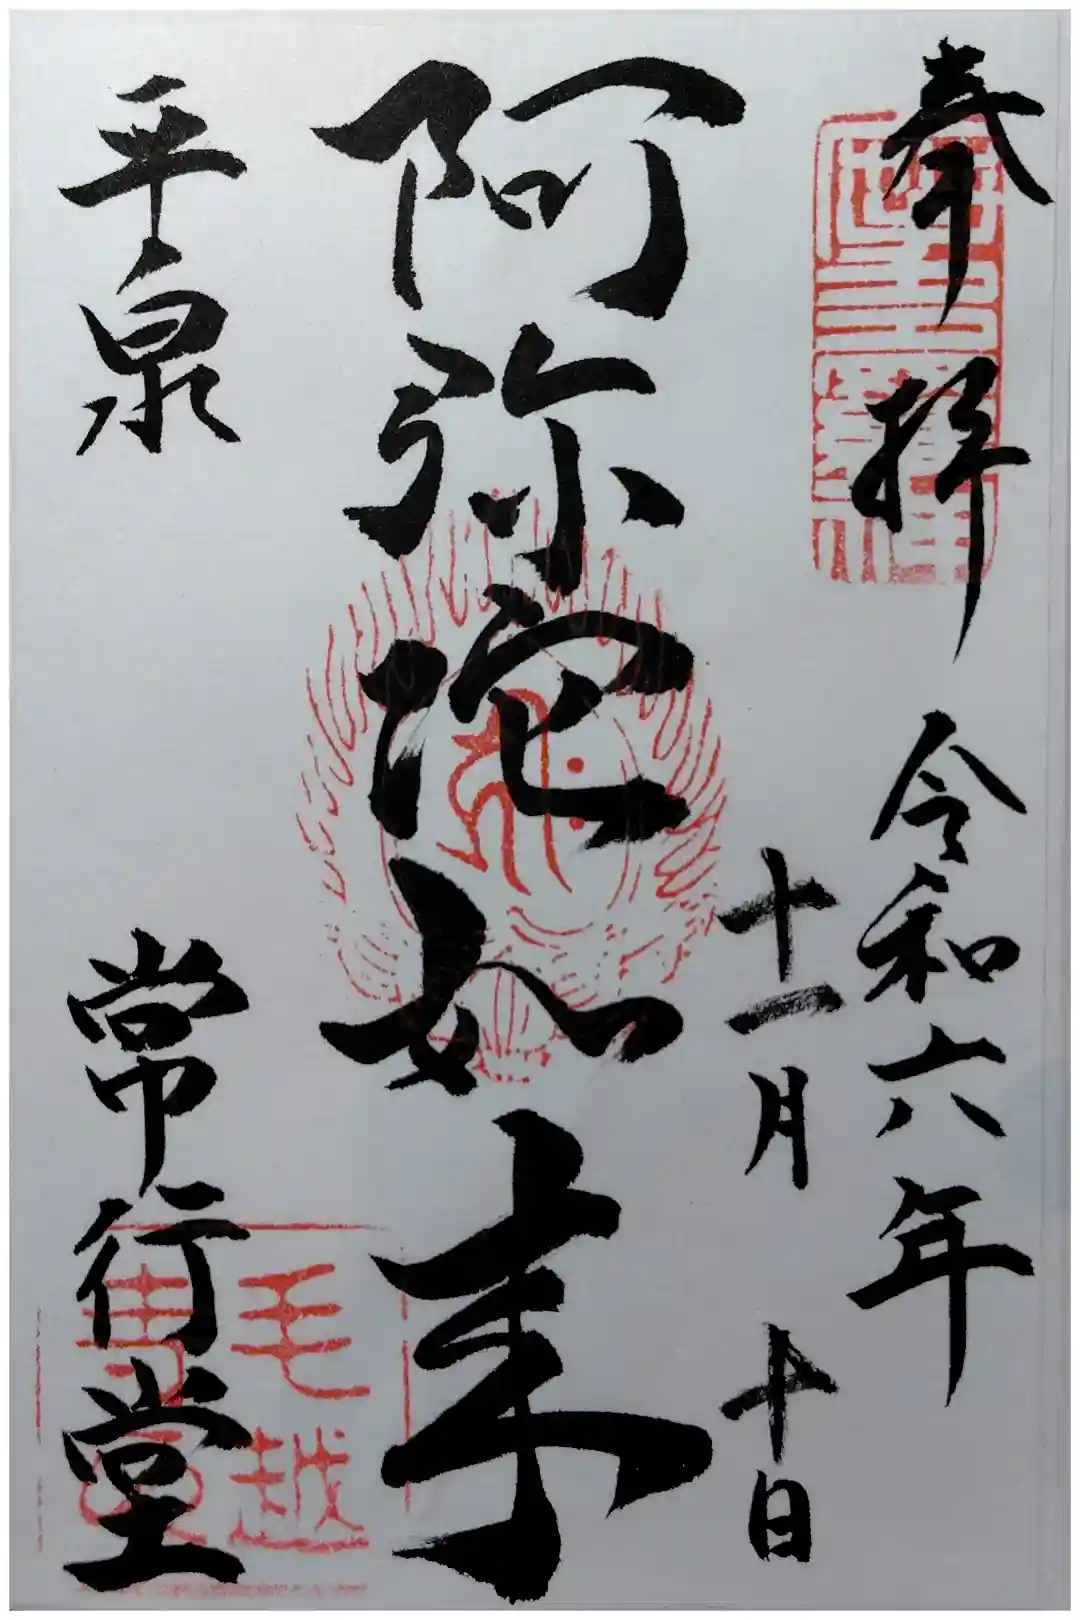 奉拝 令和六年
十一月 十日
阿弥陀如来
平泉 常行堂
毛越